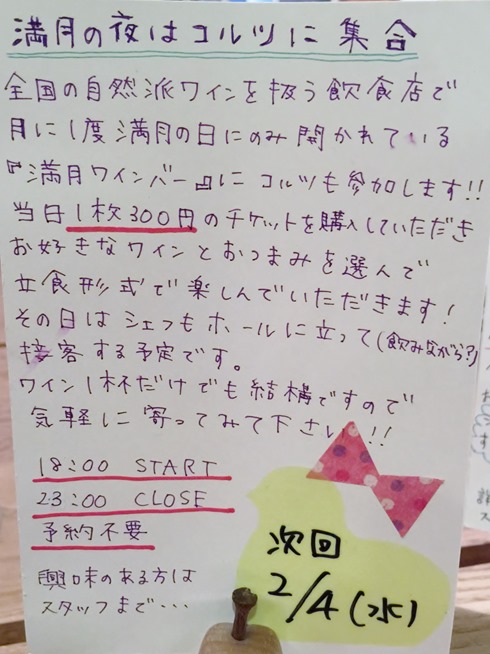 満月の夜はコルツに集合
全国の自然派ワインを扱う飲食店で
月に1度満月の日にのみ開かれている
『満月ワインバー』にコルツも参加します!!
当日1枚300円のチケットを購入していただき
お好きなワインとおつまみを選んで
立食形式で楽しんでいただきます!
その日はシェフもホールに立って(飲みながら?)
接客する予定です。
ワイン1杯だけでも結構ですので
気軽に寄ってみて下さい!!
18:00 START
23:00 CLOSE
予約不要
興味のある方は
スタッフまで・・・
次回
2/4(水)